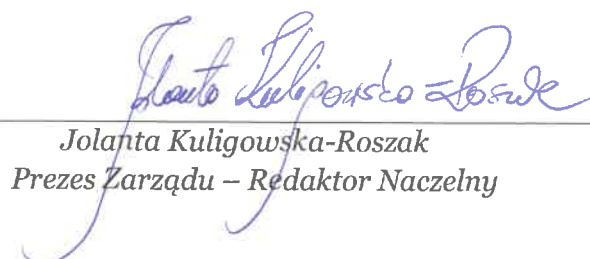 Jolanta Kuligowska-Roszak
Jolanta Kuligowska-Roszak
Prezes Zarządu – Redaktor Naczelny